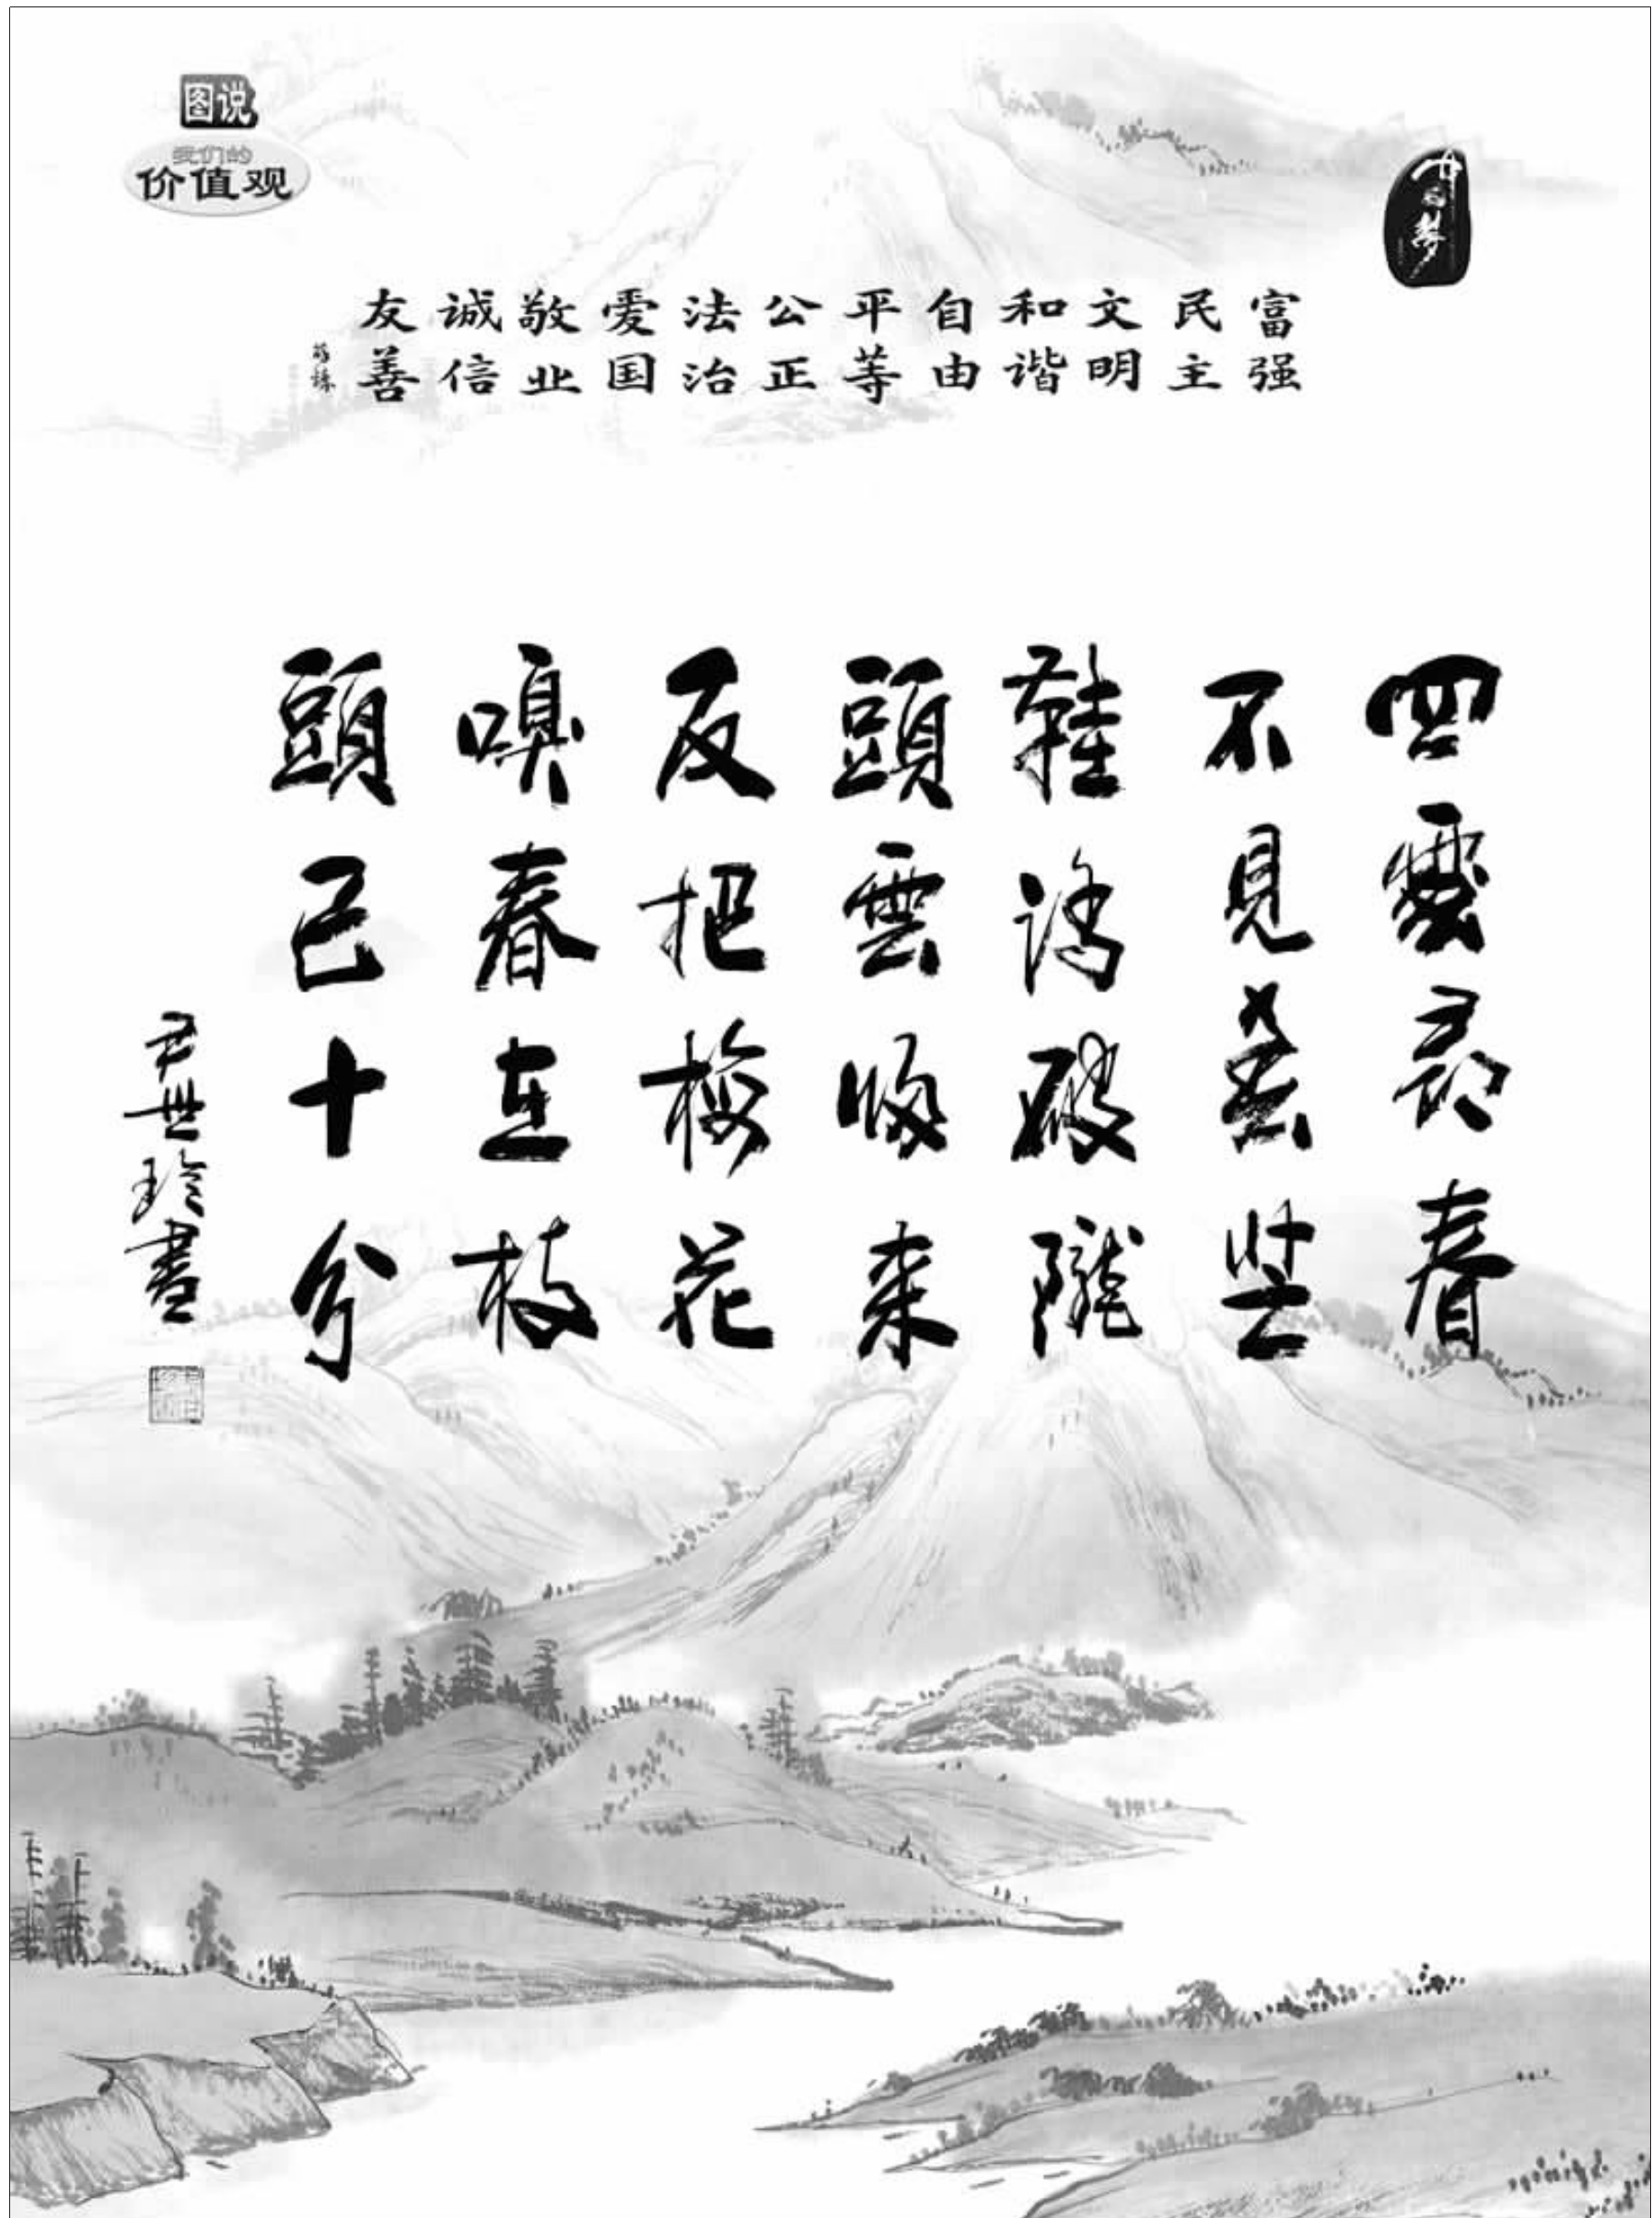 图说
我们的
价值观
中国梦
富强
民主
文明
和谐
自由
平等
公正
法治
爱国
敬业
诚信
友善
四處尋春
不見春芒
鞋踏破隴
頭雲歸来
反把梅花
嗅春在枝
頭已十分
尹世玲書